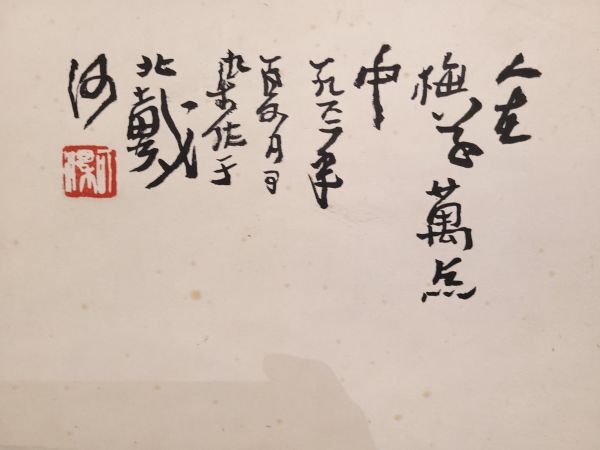 人在
梅花萬点
中
一九六二年
百又月可
染作于
北戴
河
可染